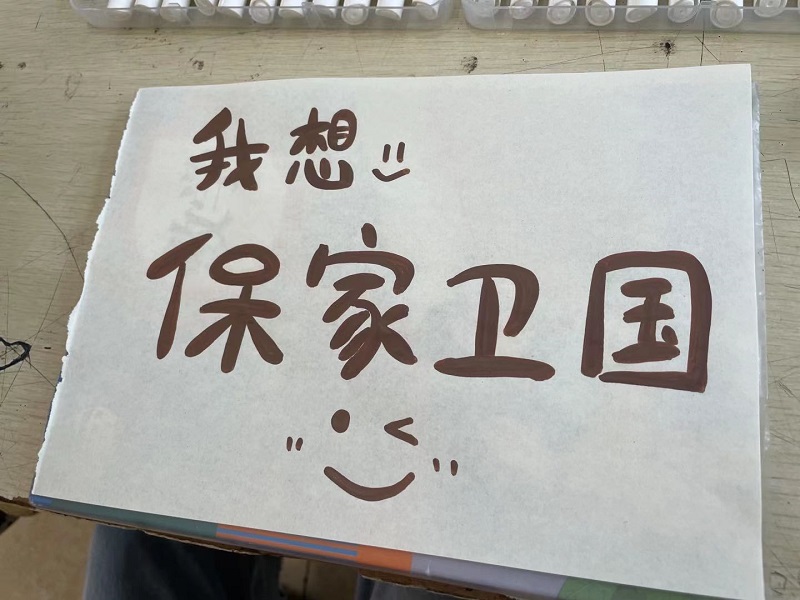 我想
保家卫国